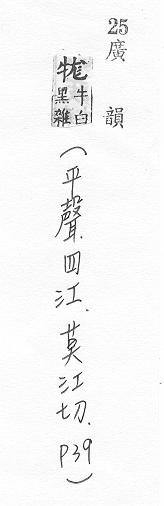 25廣韻
牻
牛白
黑雜
(平聲四江、莫江切. P39)